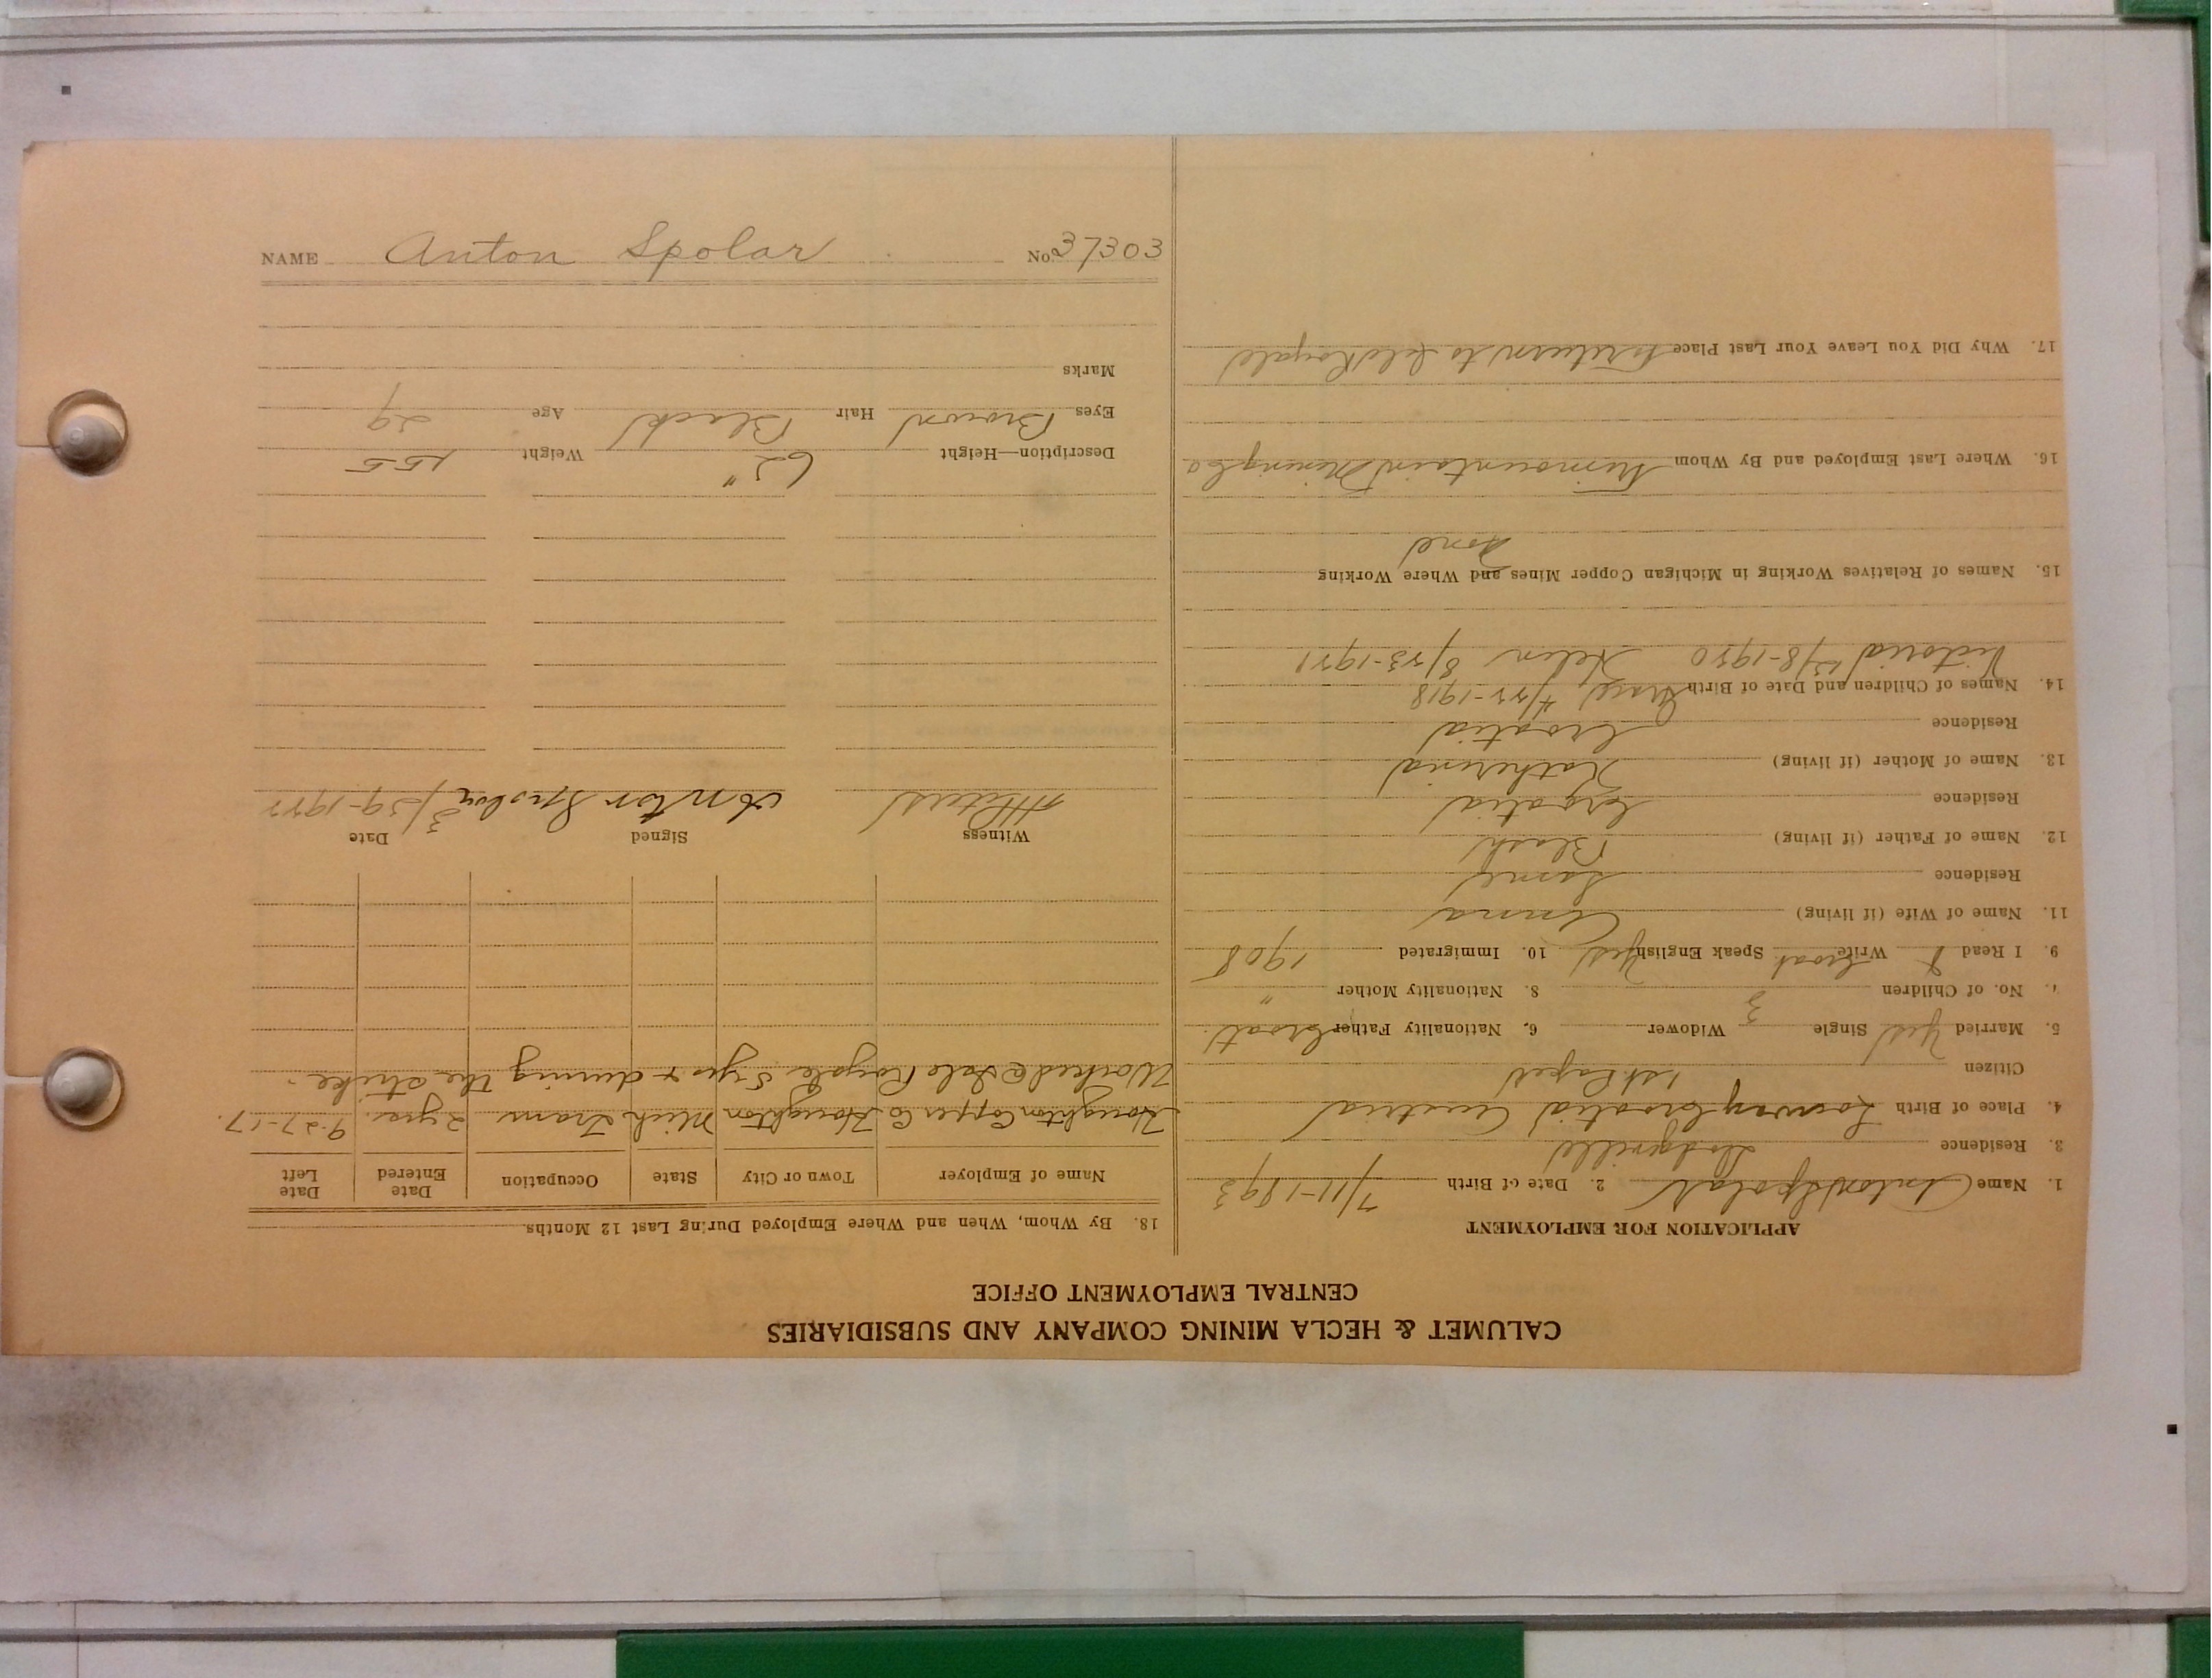 CALUMET & HECLA MINING COMPANY AND SUBSIDIARIES
CENTRAL EMPLOYMENT OFFICE
APPLICATION FOR EMPLOYMENT
1. Name Anton Spolar 2. Date of Birth 7/11-1893
3. Residence
4. Place of Birth Croatia Austria
Citizen 1st Papers
5. Married Yes Single Widower 6. Nationality Father Croat
7. No. of Children 3 8. Nationality Mother "
9. I Read & Write Croat Speak English Yes 10. Immigrated 1908
11. Name of Wife (if living) Anna
Residence Same
12. Name of Father (if living)
Residence Croatia
13. Name of Mother (if living) Katherina
Residence Croatia
14. Names of Children and Date of Birth 4/22-1918
Victoria 12/8-1920 Helen 8/23-1921
15. Names of Relatives Working in Michigan Copper Mines and Where Working
None
16. Where Last Employed and By Whom Mining Co
17. Why Did You Leave Your Last Place To return to Isle Royale
18. By Whom, When and Where Employed During Last 12 Months.
Name of Employer Town or City State Occupation Date Entered Date Left
Houghton Copper Co Houghton Mich Tram 2 yrs. 9-27-17.
Worked @ Isle Royale 5 yrs + during the strike.
Witness Signed Date
Anton Spolar 3/29-1922
Description—Height 62" Weight 155
Eyes Brown Hair Black Age 29
Marks
NAME Anton Spolar No. 37303